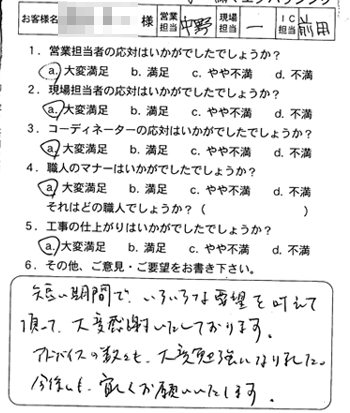 お客様名 様 営業担当 中野 現場担当 一 IC担当 前田
1．営業担当者の応対はいかがでしたでしょうか？
a. 大変満足 b. 満足 c. やや不満 d. 不満
2．現場担当者の応対はいかがでしたでしょうか？
a. 大変満足 b. 満足 c. やや不満 d. 不満
3．コーディネーターの応対はいかがでしたでしょうか？
a. 大変満足 b. 満足 c. やや不満 d. 不満
4．職人のマナーはいかがでしたでしょうか？
a. 大変満足 b. 満足 c. やや不満 d. 不満
それはどの職人でしょうか？（ ）
5．工事の仕上がりはいかがでしたでしょうか？
a. 大変満足 b. 満足 c. やや不満 d. 不満
6．その他、ご意見・ご要望をお書き下さい。
短い期間で、いろいろな要望を叶えて
頂って、大変感謝いたしております。
アドバイスの数々も、大変勉強になりました。
今後とも、宜しくお願いいたします。